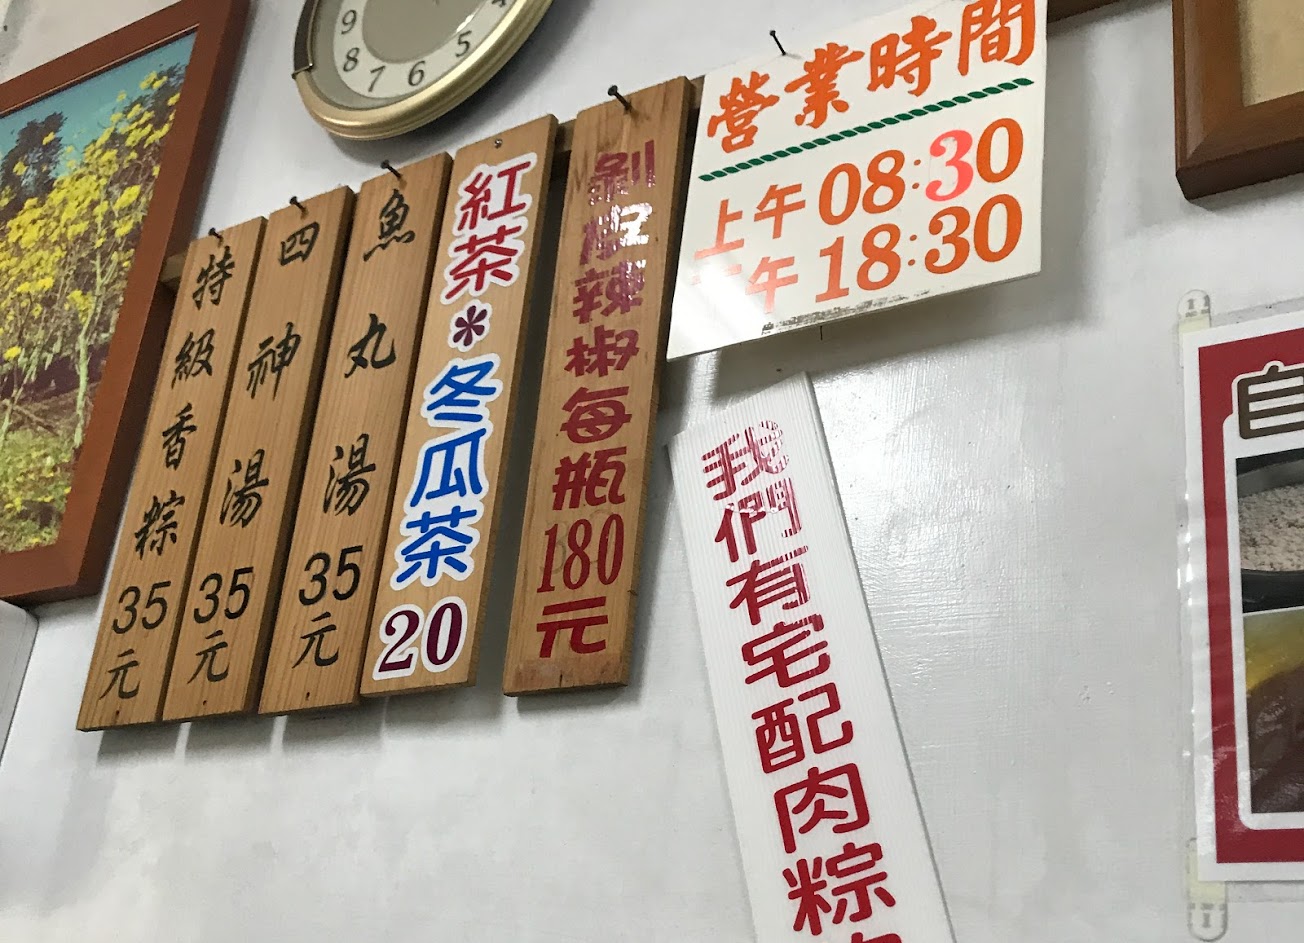 9
8
7
6
5
4
特級香粽35元
四神湯35元
魚丸湯35元
紅茶*冬瓜茶20
剝皮辣椒每瓶180元
營業時間
上午08:30
下午18:30
我們有宅配肉粽
自